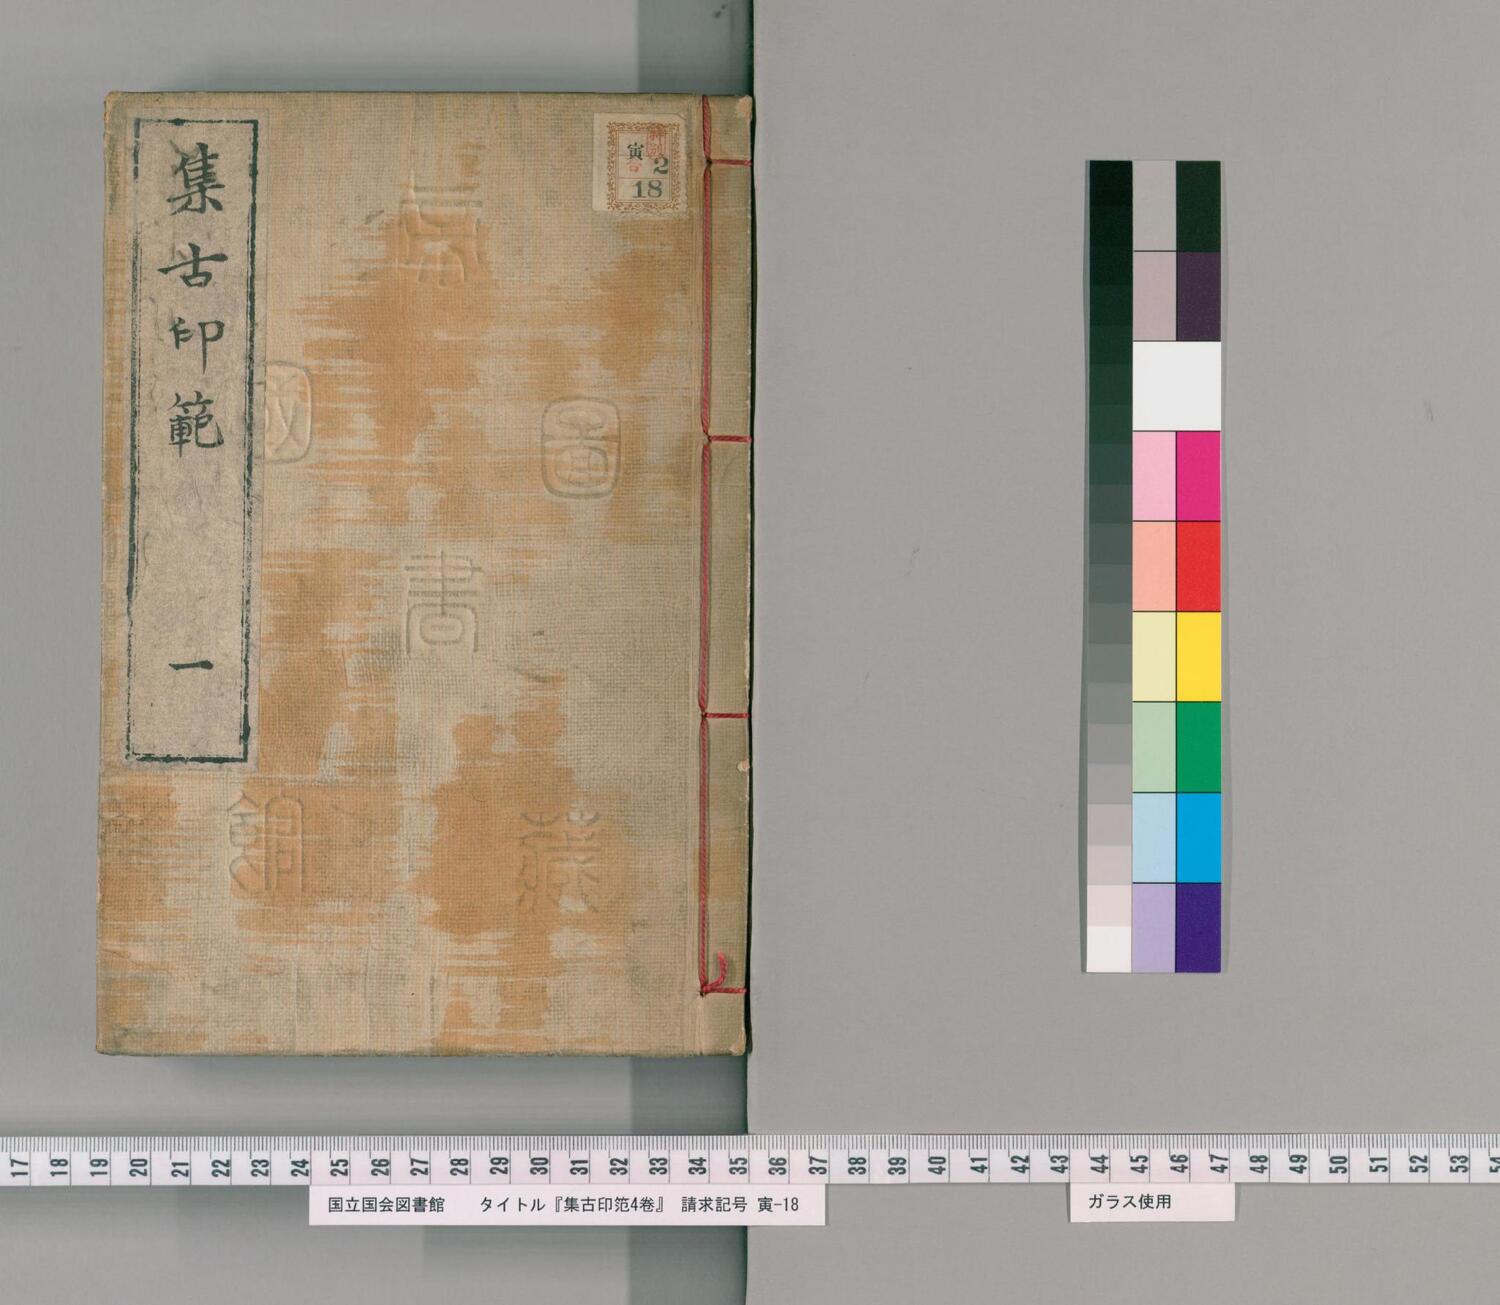 集古印範 一
寅 2
18
帝
國
圖
書
館
藏
17 18 19 20 21 22 23 24 25 26 27 28 29 30 31 32 33 34 35 36 37 38 39 40 41 42 43 44 45 46 47 48 49 50 51 52 53 54
国立国会図書館 タイトル『集古印笵4巻』 請求記号 寅-18
ガラス使用